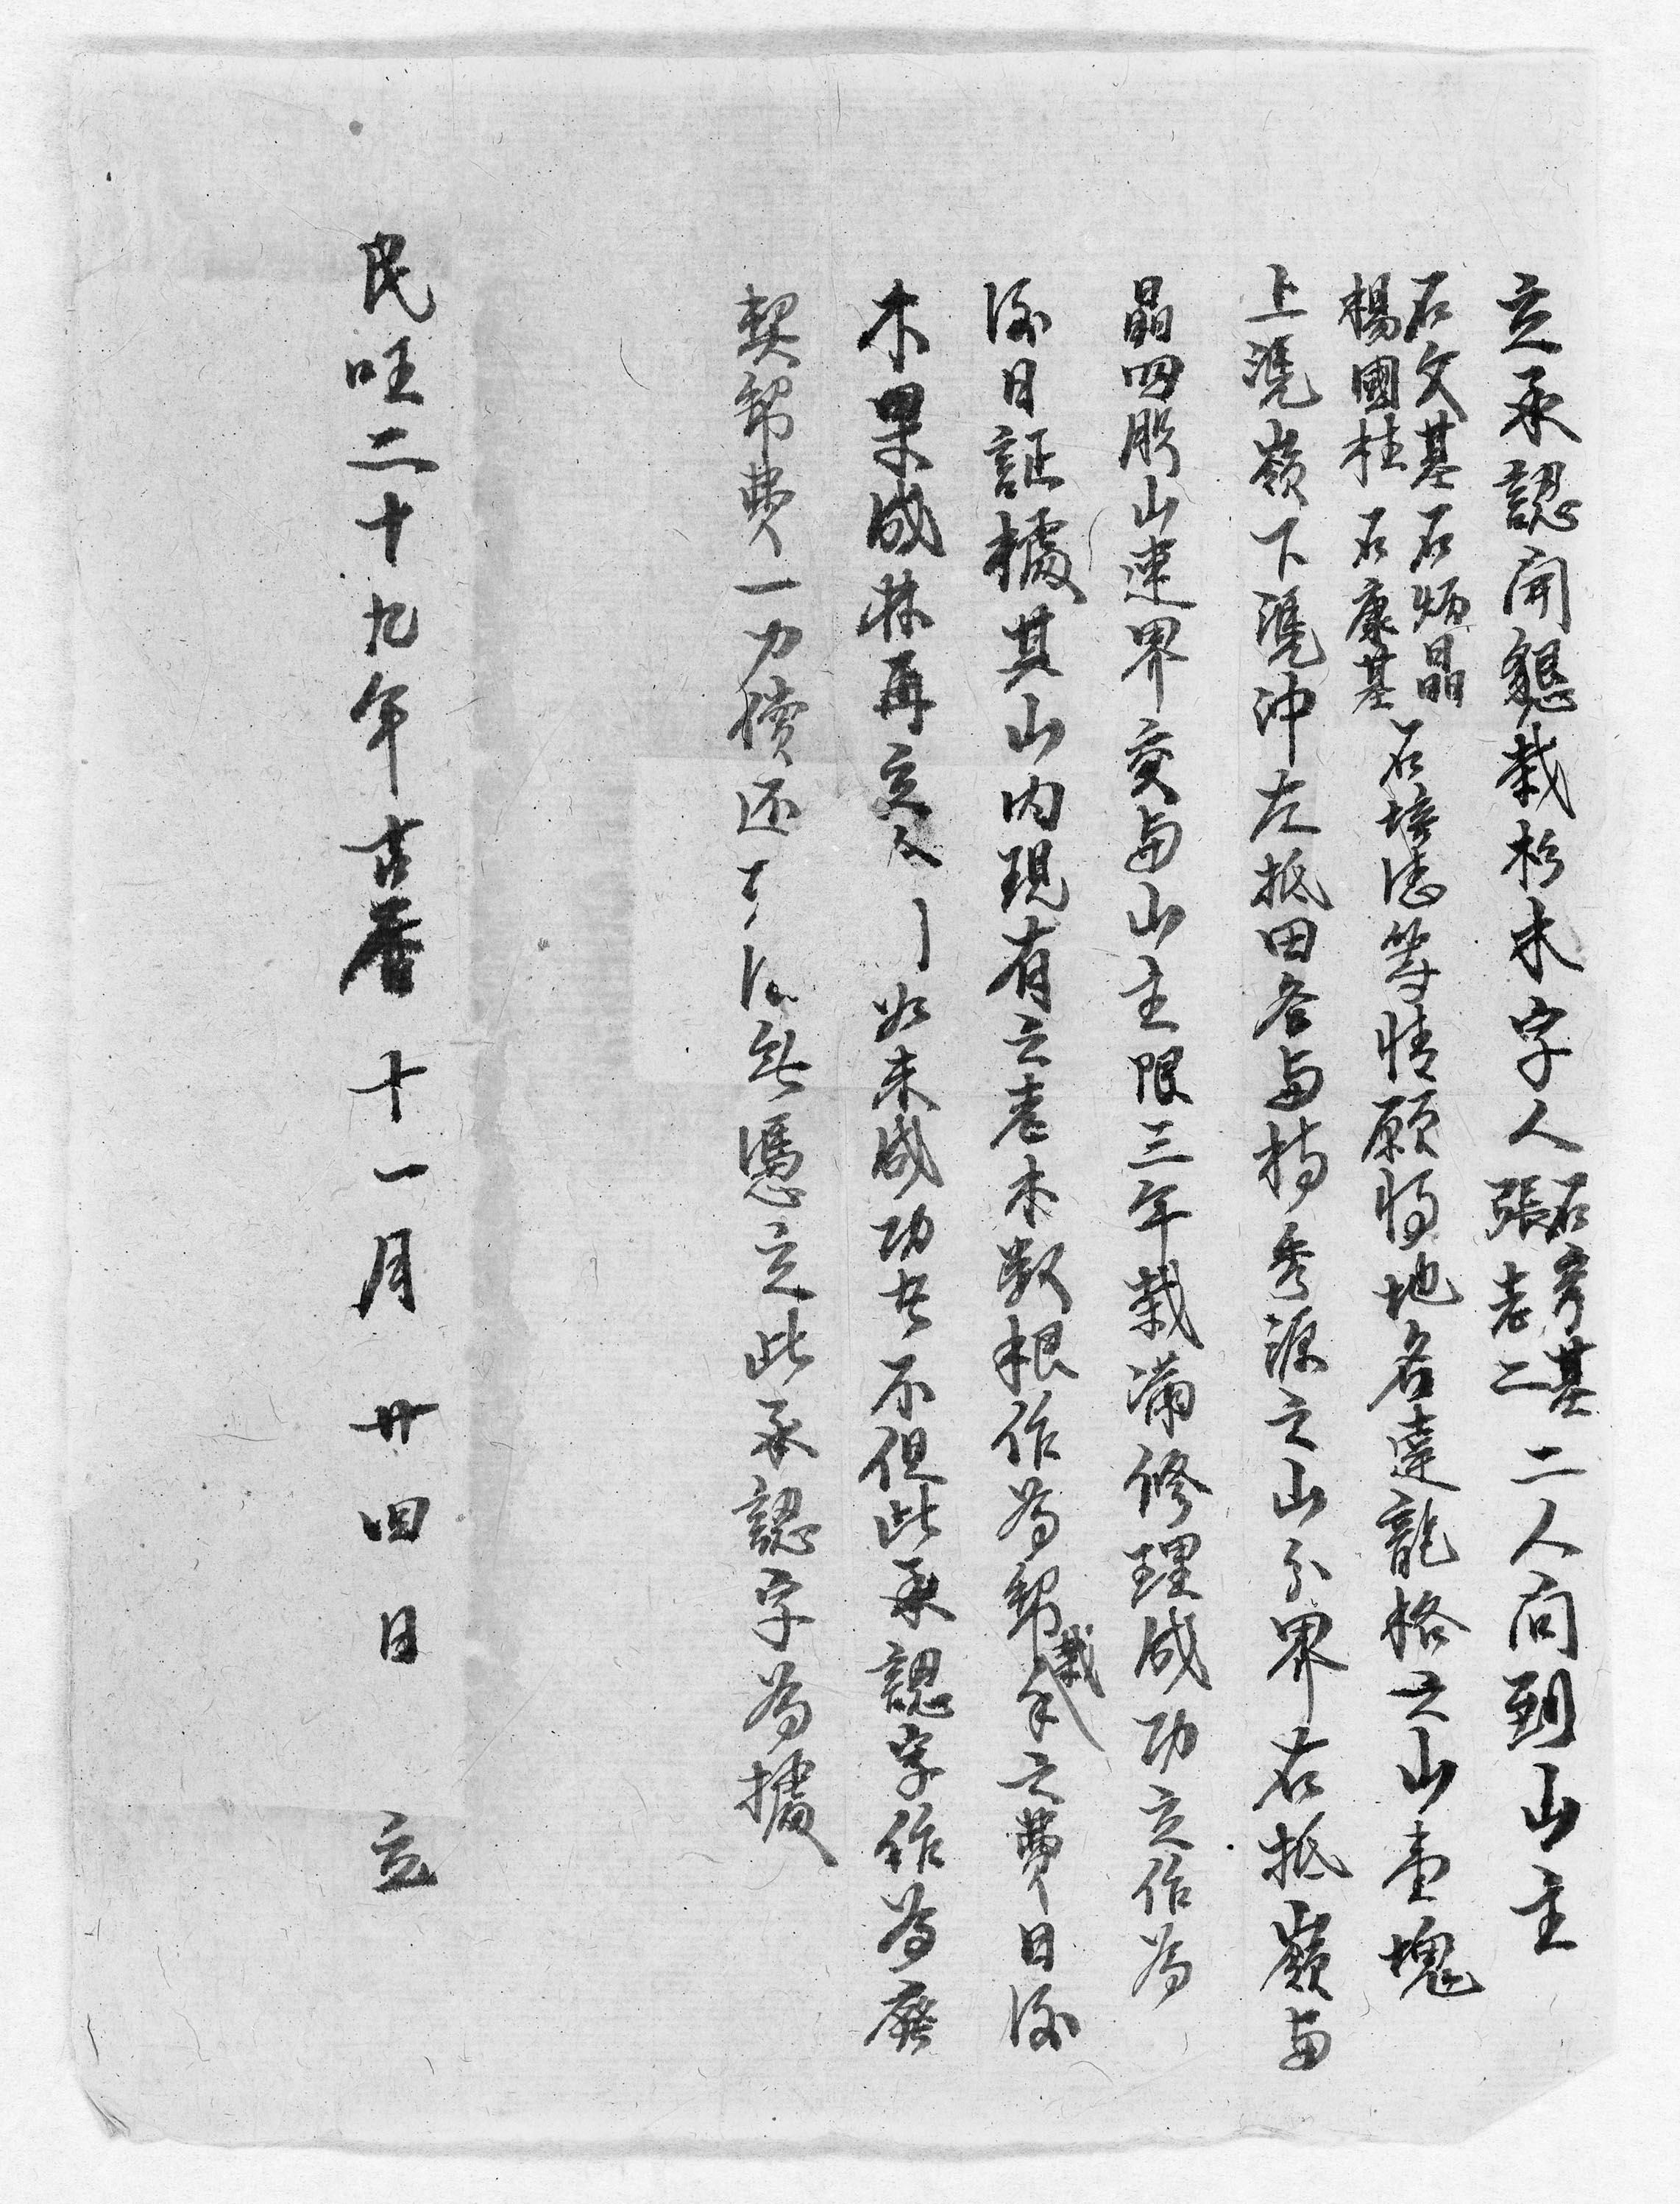 立承認開懇栽杉木字人石彦基張老二二人问到山主
石文基石炳晶楊國柱石康基石培德等情愿將地名達龍格之山壹塊
上凴嶺下凴冲左抵田各与楊秀源之山分界右抵嶺与
晶四股山連界交与山主限三年栽滿修理成功立作為
後日証據其山内現有之老木数根作為幫栽手之費日後
木果成林再立分 如未成功者不但此承認字作為廢
契幫費一力償还 無憑立此承認字為據
民旺二十九年古曆十一月廿四日 立